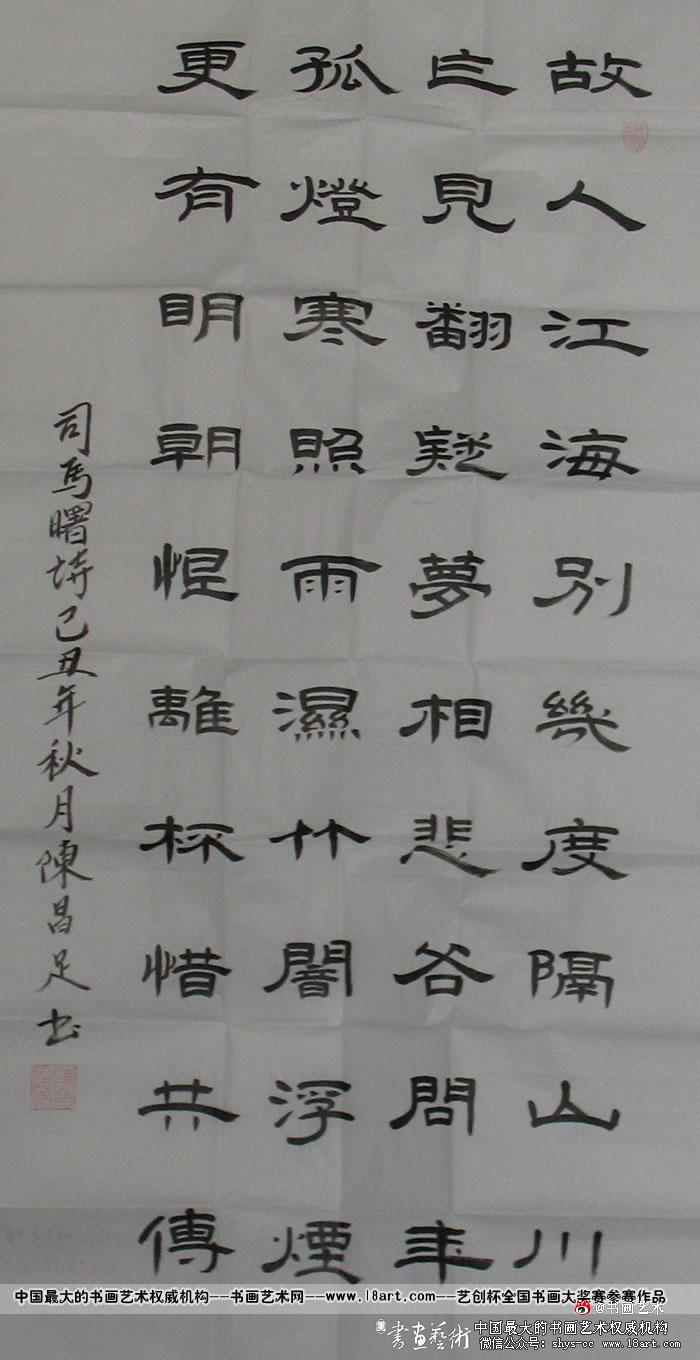 故人江海別幾度隔山川
乍見翻疑夢相悲谷問年
孤燈寒照雨濕竹闇浮煙
更有明朝恨離杯惜共傳
司馬曙詩己丑年秋月陳昌足书
中国最大的书画艺术权威机构--书画艺术网--www.18art.com--艺创杯全国书画大奖赛参赛作品
@书画艺术
書画藝術 中国最大的书画艺术权威机构
微信公众号: shys-cc www.18art.com